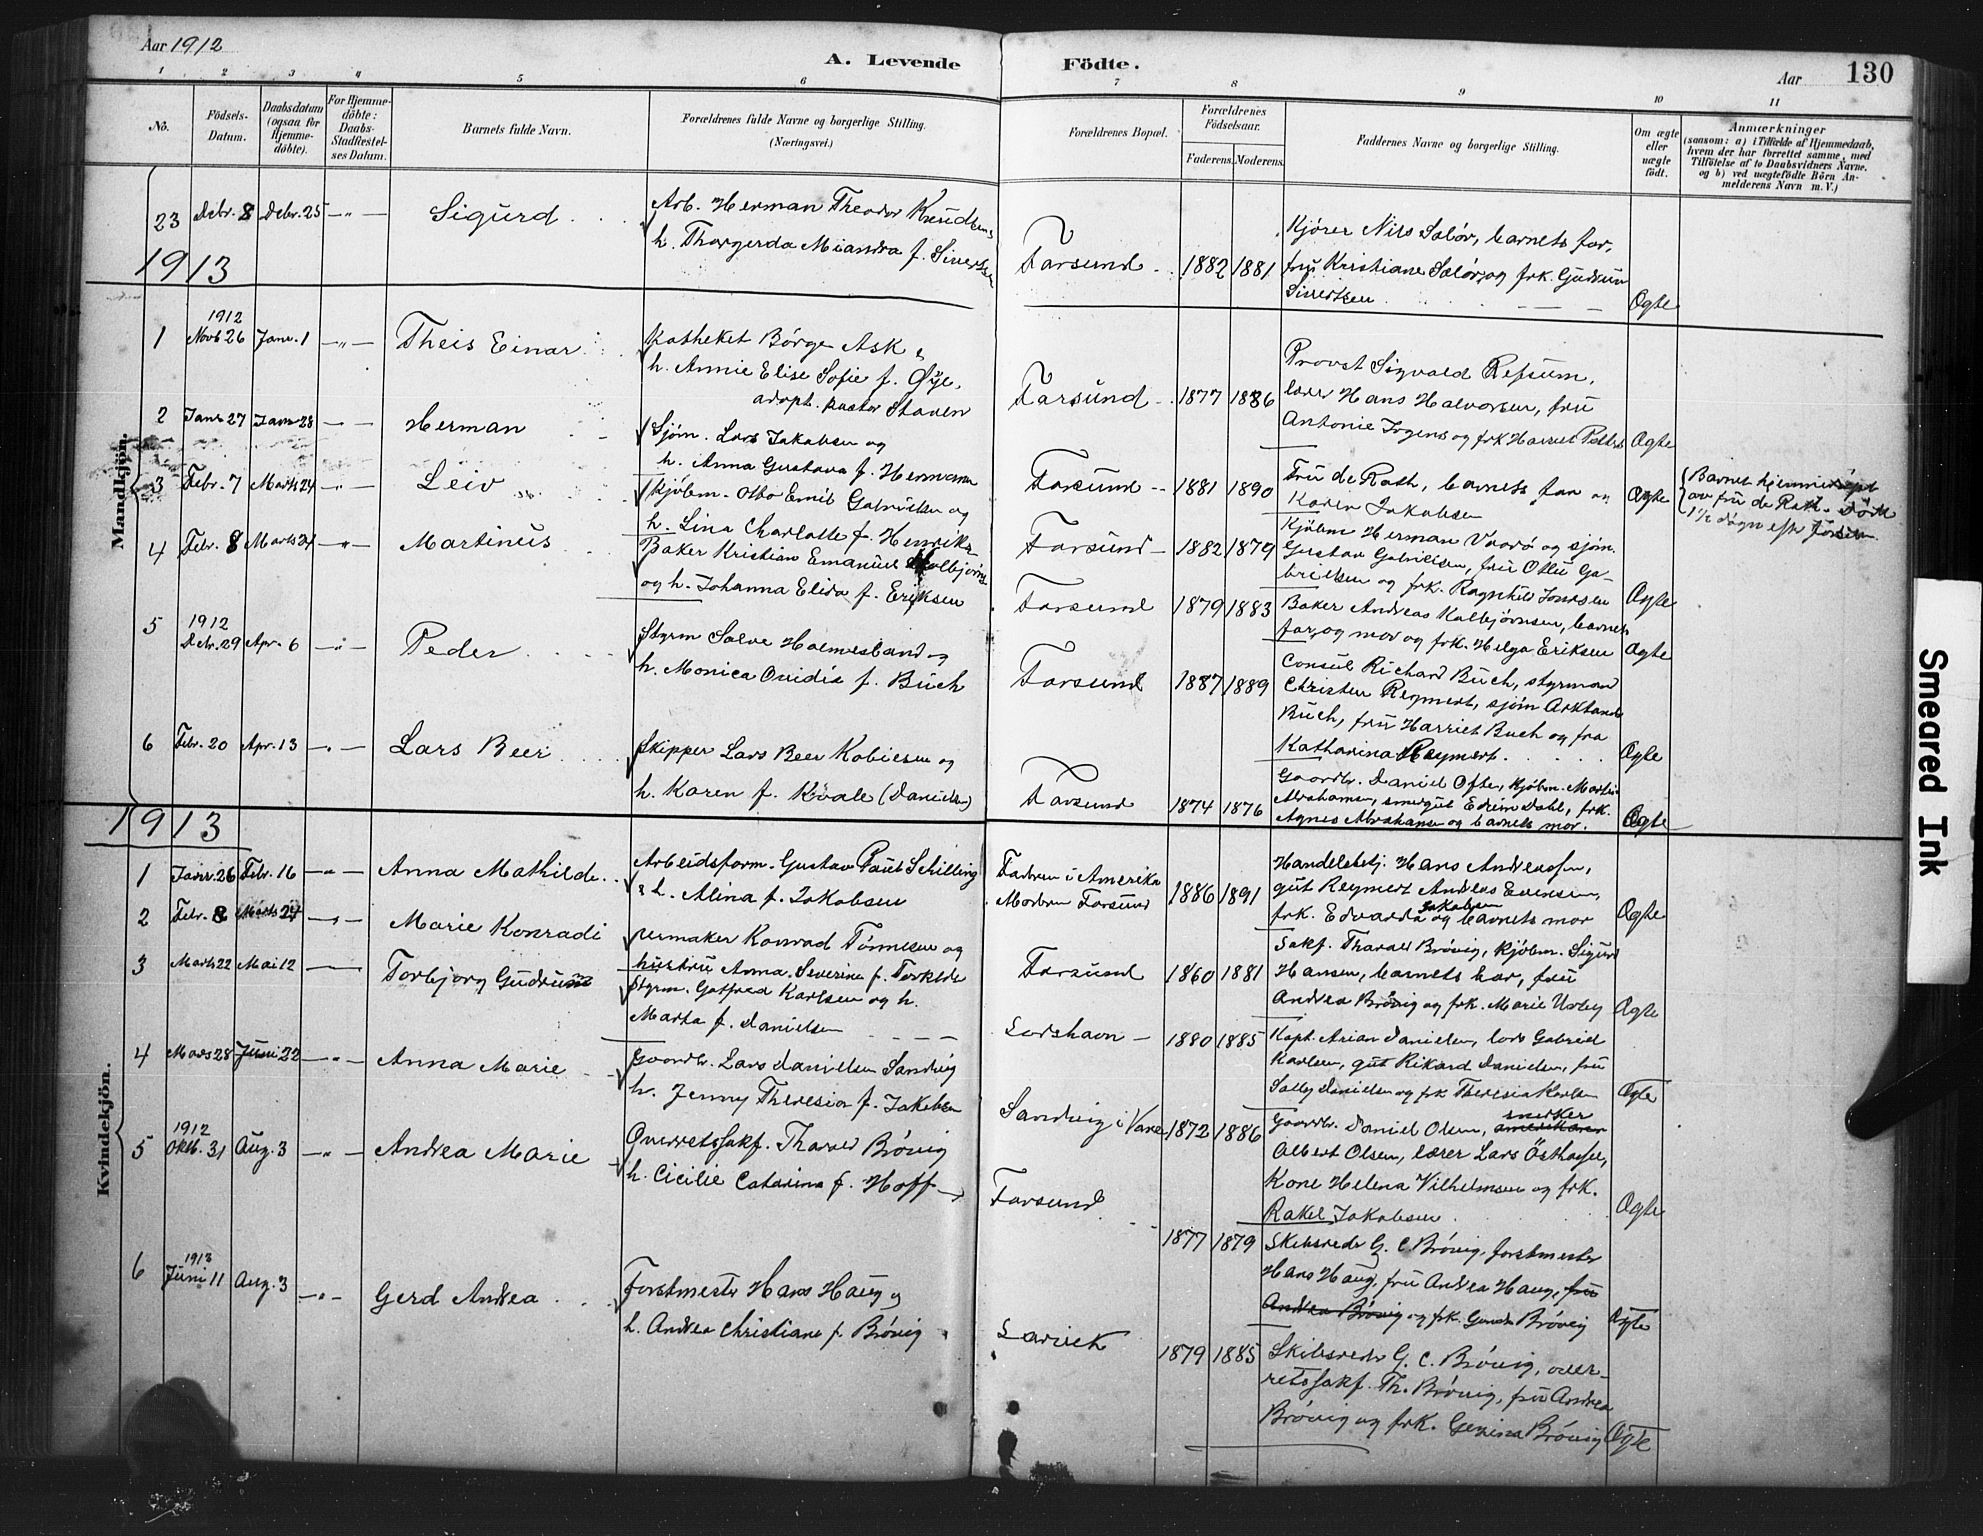 Aar 1912
A. Levende Födte.
Aar 130
1 2 3 4 5 6 7 8 9 10 11
No.
Födsels-Datum.
Daabsdatum (ogsaa for Hjemme-döbte).
For Hjemme-döbte: Daabs-Stadfæstel-ses Datum.
Barnets fulde Navn.
Forældrenes fulde Navne og borgerlige Stilling.
(Næringsvei.)
Forældrenes Bopæl.
Forældrenes Födselsaar.
Faderens. Moderens.
Faddernes Navne og borgerlige Stilling.
Om ægte eller uægte födt.
Anmærkninger
(saasom: a) i Tilfælde af Hjemmedaab, hvem der har forrettet samme, med Tilföielse af to Daabsvidners Navne. og b) ved uægtefödte Börn An-melderens Navn m. V.)
23 Debr. 8 Debr. 25 -"- Sigurd
Arb. Herman Theodor Knudsen
h. Thorgerda Miandra f. Sivertsen
Farsund 1882 1881
Kjører Nils Saløv, barnets far,
fru Kristiane Saløv, og frk. Gudrun
Sivertsen Ægte
1913
Mandkjön.
1 1912 Novb 26 Janr. 1 -"- Theis Einar
Katheket Børge Ask &
h. Annie Elise Sofie f. Øye,
adopt. pastor Staven
Farsund 1877 1886
Provst Sigvald Refsum,
lærer Hans Halvorsen, fru
Antonie Irgens og frk Harriet Ægte
2 Janr 27 Janr 28 -"- Herman
Sjøm. Lars Jakobsen og
h. Anna Gustava f. Hermann
Farsund 1881 1890
Fru de Rath, barnets far og
Karen Jakobsen Ægte
Barnet hjemmedøpt
av fru de Rath. Død
1½ døgn eft. fødsln.
3 Febr. 7 Marts 24 -"- Leiv
Kjøbm. Otto Emil Gabrielsen og
h. Lina Charlotte f. Henriks-
Farsund 1882 1879
Kjøbm Herman Vaarø og sjøm.
Gustav Gabrielsen, fru Ottu Ga-
brielsen og frk. Ragnhil Ægte
4 Febr. 8 Marts 24 -"- Martinus
Baker Kristian Emanuel Kolbjørns
og h. Johanna Elida f. Eriksen
Farsund 1879 1883
Baker Andreas Kolbjørnsen, barnets
far, og mor og frk. Helga Eriksen Ægte
5 1912 Debr. 29 Apr. 6 -"- Peder
Styrm Salve Holmesland og
h. Monica Ovidia f. Buch
Farsund 1887 1889
Consul Richard Buch, styrmand
Christen Reymert, sjøm
Buch, fru Harriet Buch og frø
Katharina Reymert. Ægte
6 Febr. 20 Apr. 13 -"- Lars Beer
Skipper Lars Beer Kobiesen og
h. Karen f. Kvale (Danielsen)
Farsund 1874 1876
Gaardbr. Daniel Ofte, kjøbm. Martin
Abrahamsen, smedgut Edvin Dahl, frk.
Agnes Abrahamsen og barnets mor. Ægte
1913
Kvindekjön.
1 Janr. 26 Febr. 16 -"- Anna Mathilde
Arbeidsform. Gustav Paul Schilling
& h. Alina f. Jakobsen
Faderen i Amerika
Moderen Farsund 1886 1891
Handelsbetj. Hans Andreassen,
gut Reymert Andreas Evensen,
frk. Edvarda Jakobsen og barnets mor Ægte
2 Febr. 8 Marts 24 -"- Marie Konradi
Urmaker Konrad Tønnesen og
hustru Anna Severine f. Torkelds
Farsund 1860 1881
Sakf. Tharald Brøvig, kjøbm. Sigurd
Hansen, barnets far, fru
Andrea Brøvig og frk. Marie Ægte
3 Marts 22 Mai 12 Torbjorg Gudrun
Styrm. Gotfred Karlsen og h.
Marta f. Danielsen
Lorshavn 1880 1885
Kapt. Arian Danielsen, lods Gabriel
Karlsen, gut Rikard Danielsen, fru
Sally Danielsen og frk Theresia Karlsen Ægte
4 Mars 28 Juni 22 -"- Anna Marie
Gaardbr. Lars Danielsen Sandvig
h. Jenny Theresia f. Jakobsen
Sandvig i Vanse 1872 1886
Gaardbr. Daniel Olsen, snedker
Albert Olsen, lærer Lars Østhassel,
Kone Helena Vilhelmsen og frk.
Rakel Jakobsen Ægte
5 1912 Oktb. 31 Aug. 3 -"- Andrea Marie
Overretssakf. Tharald Brøvig
h. Cicilie Catarina f. Hoff
Farsund 1877 1879
Skibsreder G. C. Brøvig, forstmester
Hans Haug, fru Andrea Haug, fru
Andrea Brøvig og frk. Brøvig Ægte
6 1913 Juni 11 Aug. 3 -"- Gerd Andrea
Forstmester Hans Haug og
h. Andrea Christiane f. Brøvig
Larvik 1879 1885
Skibsreder G. C. Brøvig, over-
retssakf. Th. Brøvig, fru Andrea
Brøvig og frk. Brøvig Ægte
Smeared Ink